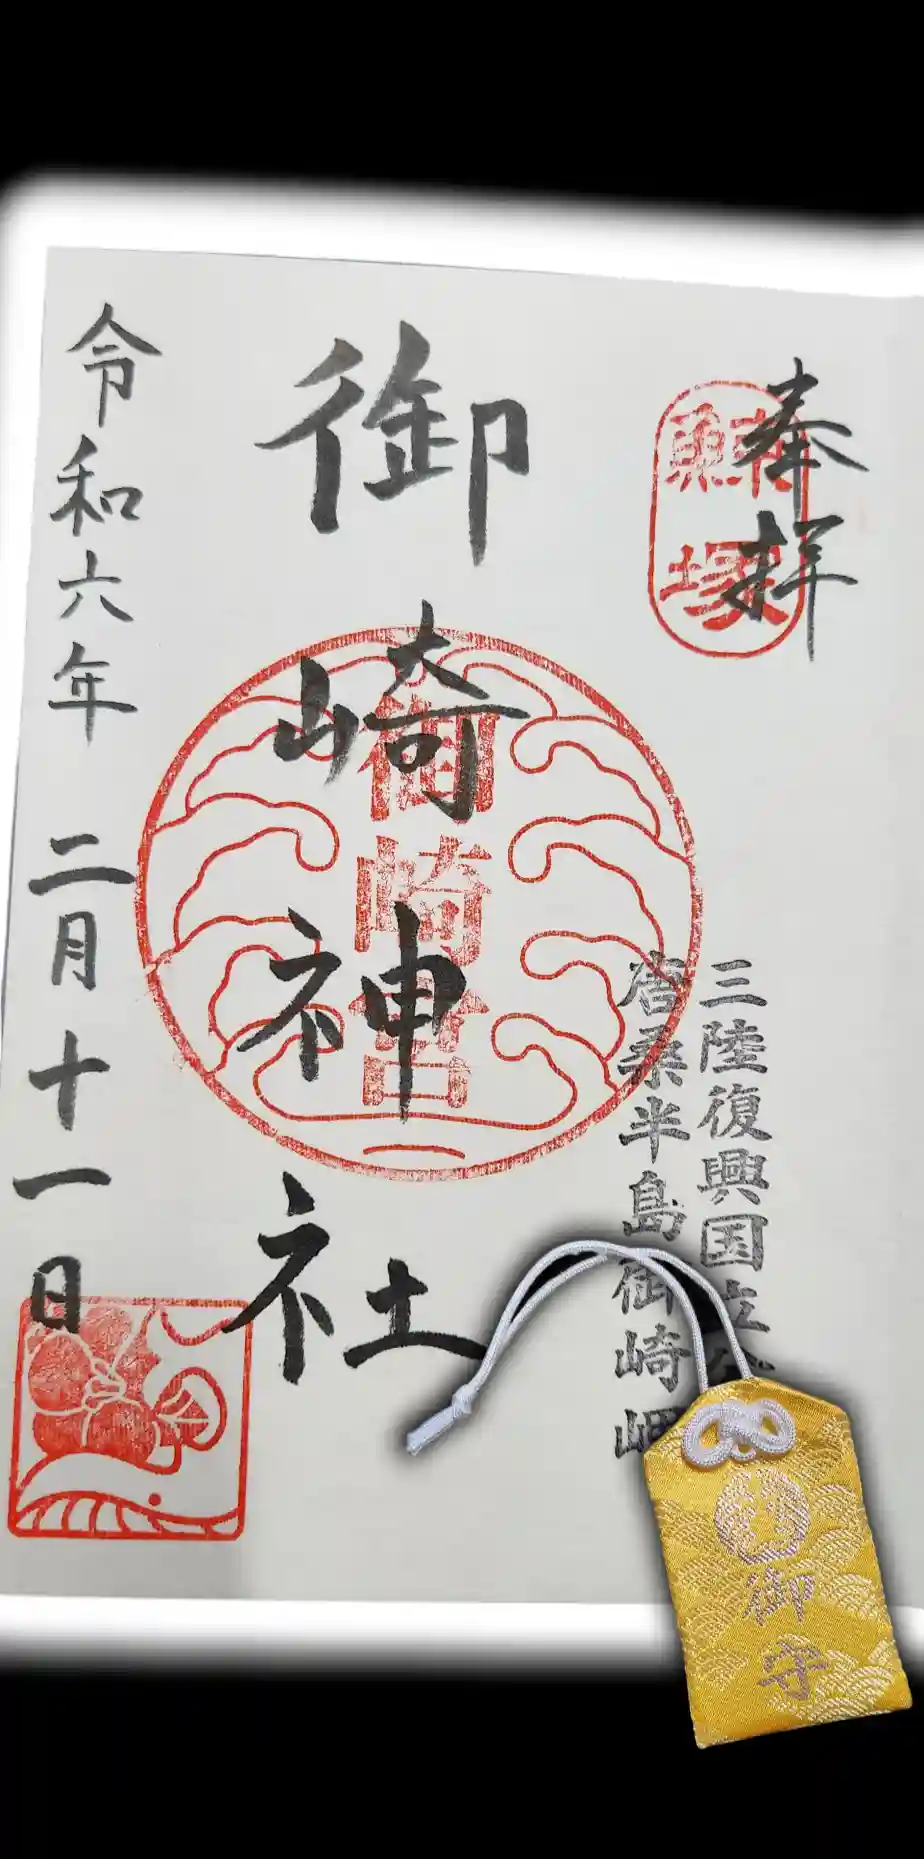 奉拝
鯨塚
三陸復興国立
唐桑半島御崎岬
御崎神社
御崎宮
令和六年 二月十一日
御守